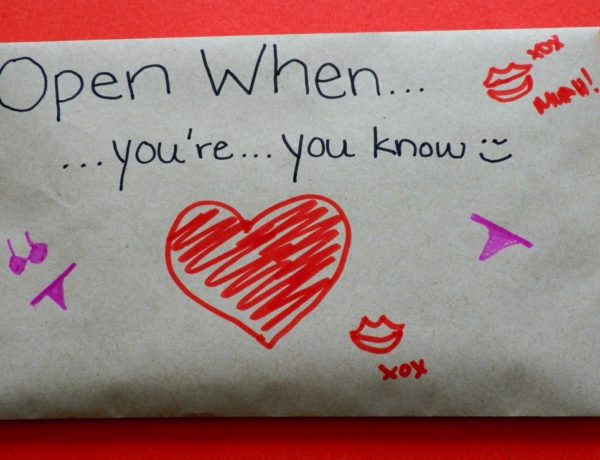 Open When...
xox
MUAH!
...you're...you know
xox